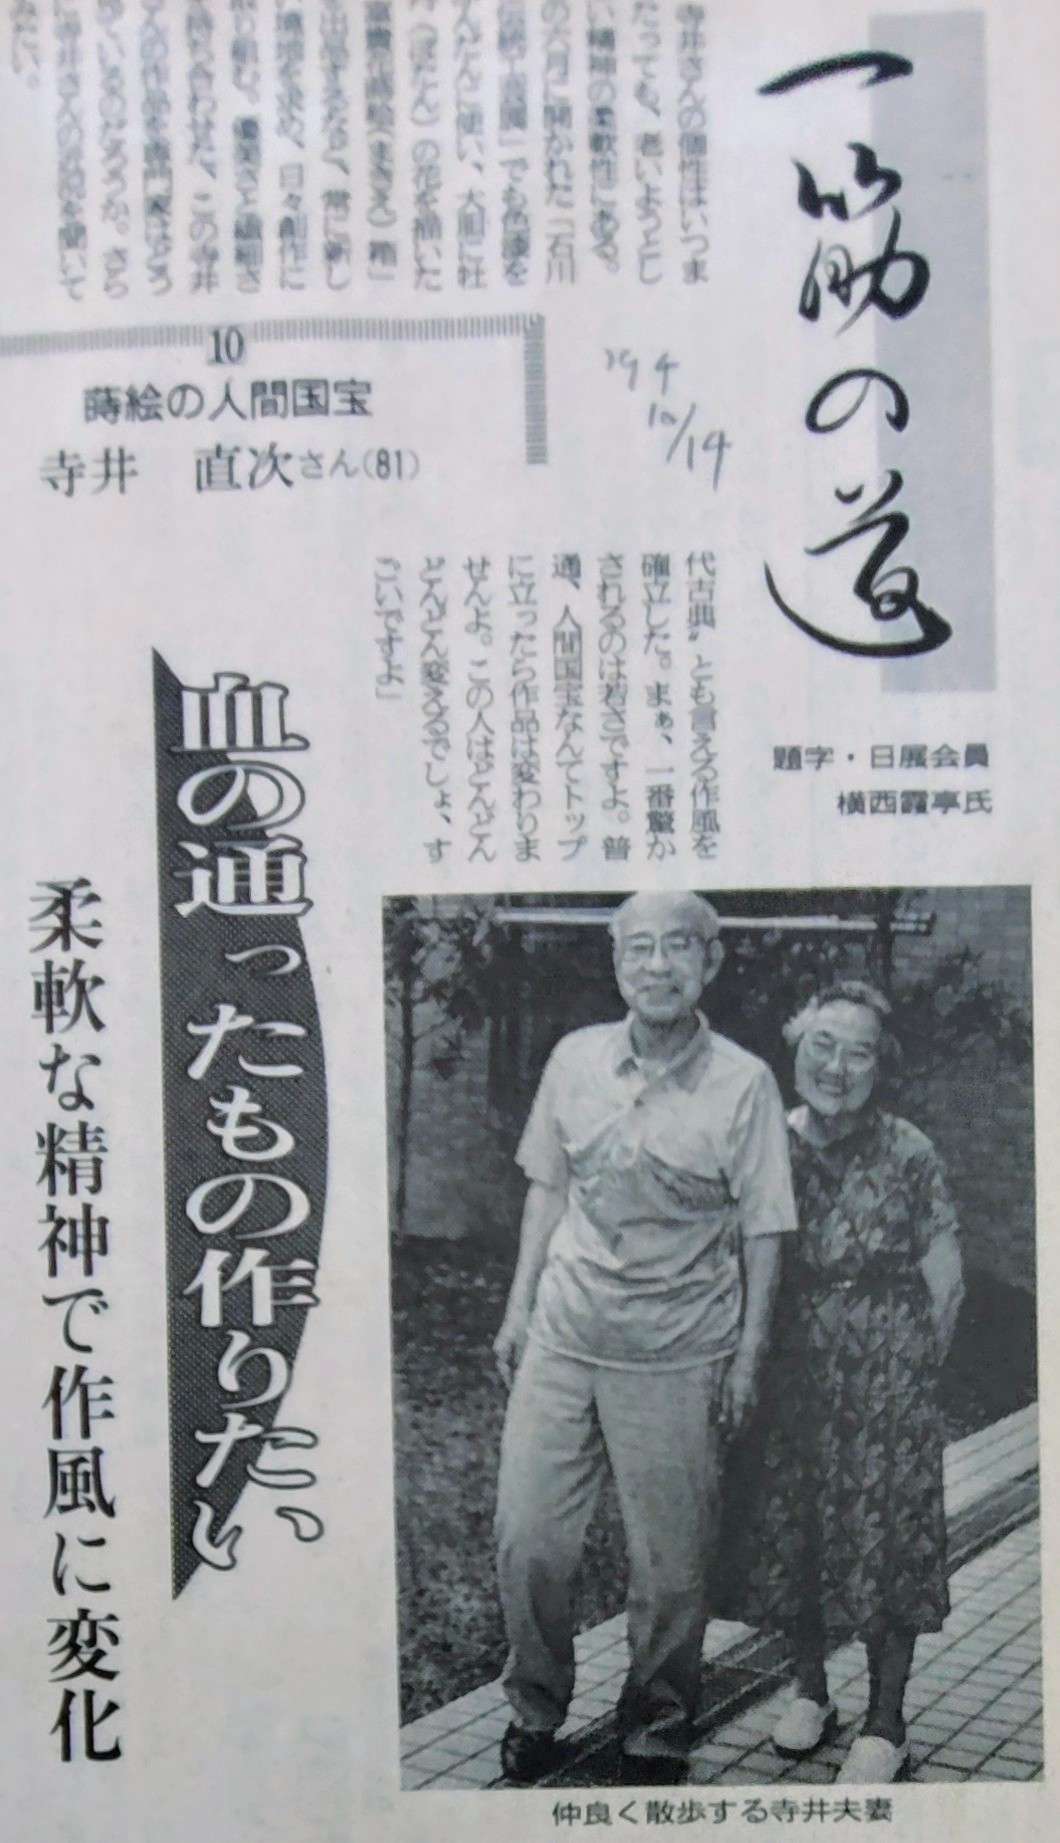 一筋の道
題字・日展会員
横西霞亭氏
寺井さんの個性はいつま
たっても、老いようとし
い精神の柔軟性にある。
の六月に開かれた「石川
でも色漆を
んだんに使い、大胆に牡
（ぼたん）の花を描いた
（まきえ）箱」
常に新し
日々創作に
り組む。優美さと繊細さ
この寺井
んの作品を専門家はどう
ているのだろうか。さら
に寺井さんの
みたい。
10
蒔絵の人間国宝
寺井 直次さん(81)
'94
10/14
代古典〟とも言える作風を
確立した。まぁ、一番驚か
されるのは若さですよ。普
通、人間国宝なんてトップ
に立ったら作品は変わりま
せんよ。この人はどんどん
どんどん変えるでしょ、す
ごいですよ」
血の通ったもの作りたい
柔軟な精神で作風に変化
仲良く散歩する寺井夫妻